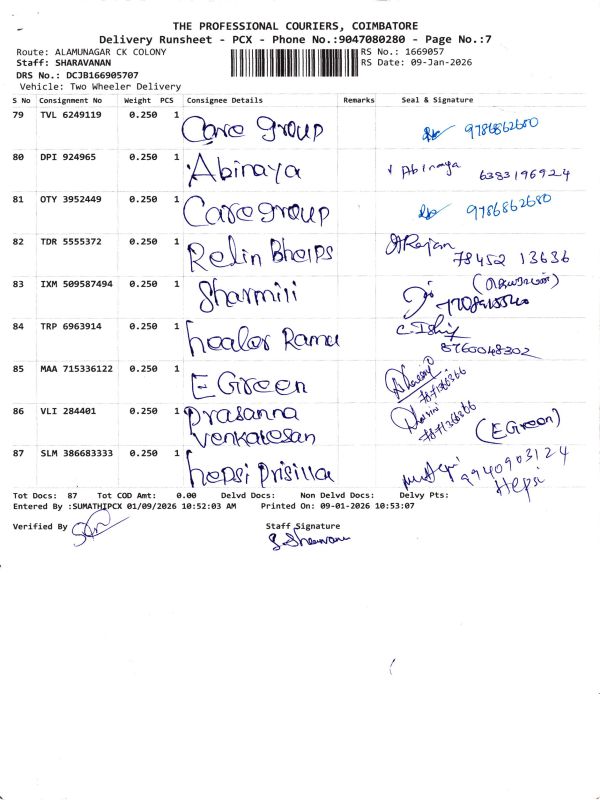 THE PROFESSIONAL COURIERS, COIMBATORE
Delivery Runsheet - PCX - Phone No.:9047080280 - Page No.:7
Route: ALAMUNAGAR CK COLONY RS No.: 1669057
Staff: SHARAVANAN RS Date: 09-Jan-2026
DRS No.: DCJB166905707
Vehicle: Two Wheeler Delivery
S No Consignment No Weight PCS Consignee Details Remarks Seal & Signature
79 TVL 6249119 0.250 1 Care Group 9786862680
80 DPI 924965 0.250 1 Abinaya Abinaya 6383196924
81 OTY 3952449 0.250 1 Care group 9786862680
82 TDR 5555372 0.250 1 Relin Bheips Rajan 78452 13636
83 IXM 509587494 0.250 1 Sharmili
84 TRP 6963914 0.250 1 healer Ramu 8760048302
85 MAA 715336122 0.250 1 E Green 7871366366
86 VLI 284401 0.250 1 Prasanna
venkatesan 7871366366 (E Green)
87 SLM 386683333 0.250 1 hepsi Prisilla 9940903124
Hepsi
Tot Docs: 87 Tot COD Amt: 0.00 Delvd Docs: Non Delvd Docs: Delvy Pts:
Entered By :SUMATHIPCX 01/09/2026 10:52:03 AM Printed On: 09-01-2026 10:53:07
Verified By Staff Signature